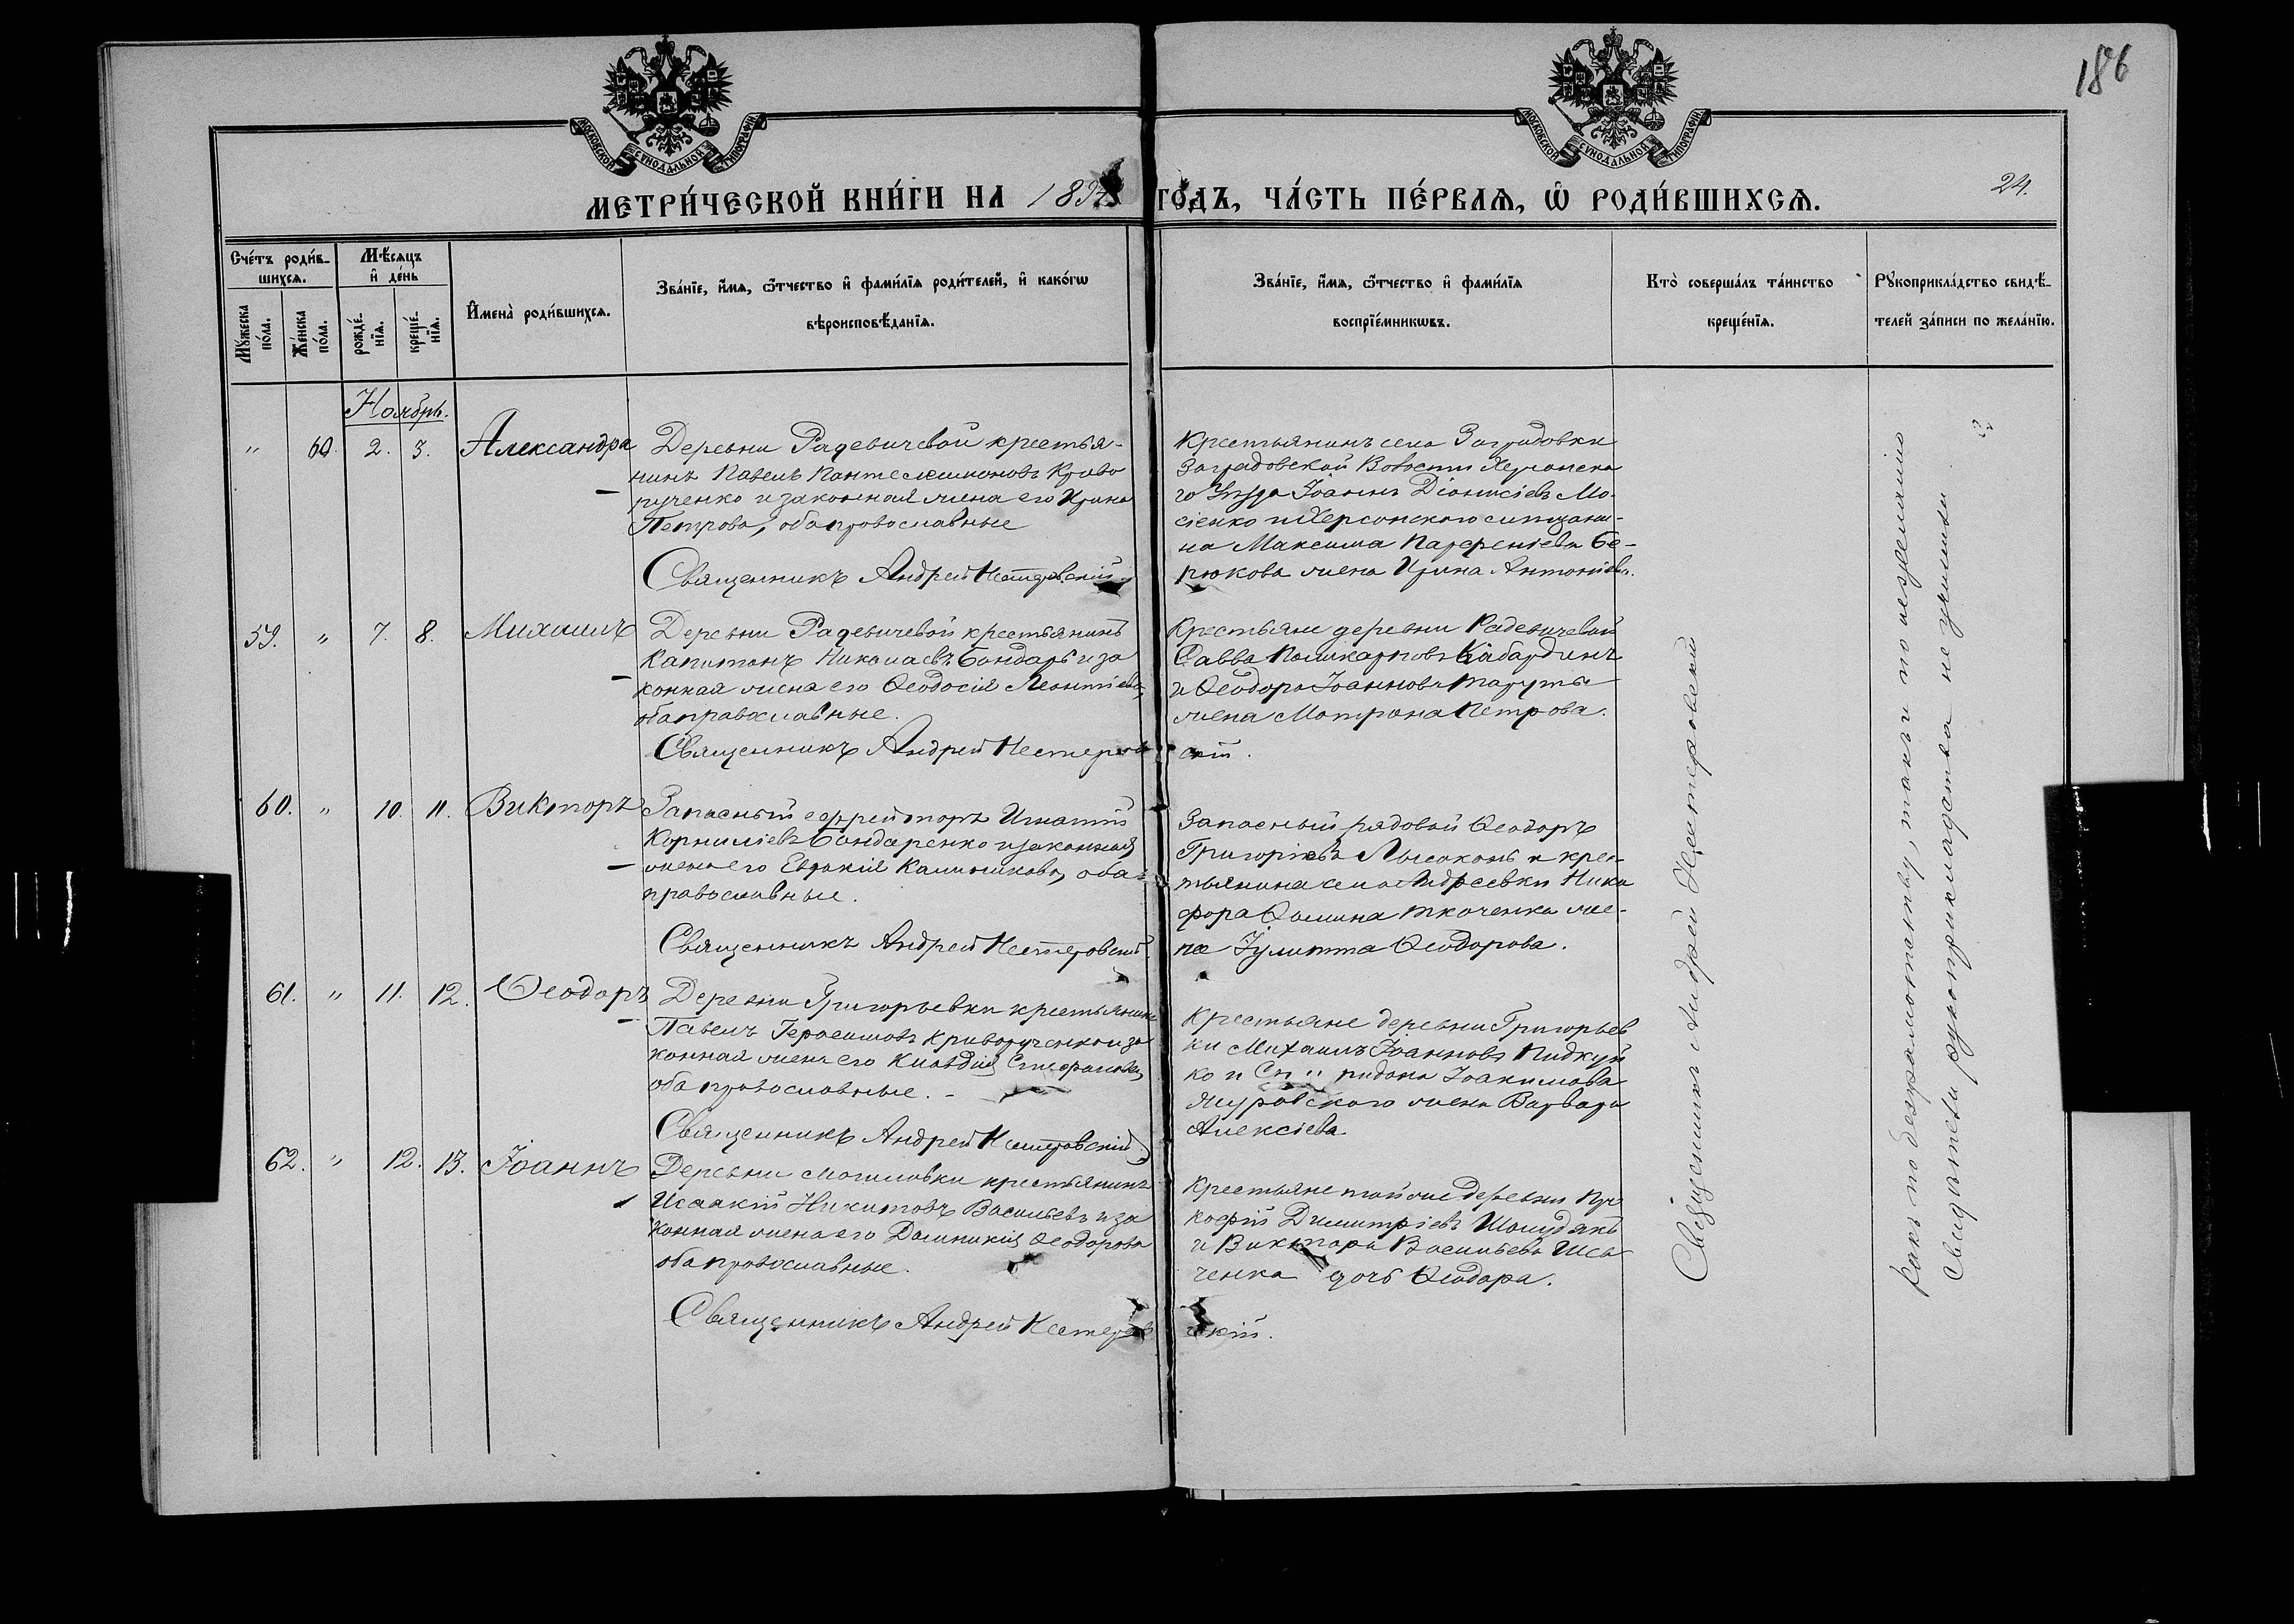 186
МОСКОВСКОЙ СѴНОДАЛЬНОЙ ТИПОГРАФІИ
МОСКОВСКОЙ СѴНОДАЛЬНОЙ ТИПОГРАФІИ
МЕТРИ́ЧЕСКОЙ КНИ́ГИ НА 1894 ГО́ДЪ, ЧА́СТЬ ПЕ́РВАѦ, Ѽ РОДИ́ВШИХСѦ.
24.
Сче́тъ роди́в-
шихсѧ.
Мѣ́сѧцъ
и҆ де́нь
Мꙋ́жеска
по́ла.
Же́нска
по́ла.
рожде́-
нїѧ.
креще́-
нїѧ.
И҆мена̀ роди́вшихсѧ.
Зва́нїе, и҆́мѧ, ѻ҆́тчество и҆ фами́лїѧ роди́телей, и҆ како́гѡ
вѣроисповѣ́данїѧ.
Зва́нїе, и҆́мѧ, ѻ҆́тчество и҆ фами́лїѧ
воспрїе́мникѡвъ.
Кто̀ соверша́лъ та́инство
креще́нїѧ.
Рꙋкоприкла́дство свидѣ́-
телей за́писи по жела́нїю.
Ноябрь.
" 60. 2. 3. Александра
Деревни Радевичевой крестья-
нинъ Павелъ Пантелеимоновъ Криво
рученко и законная жена его Ирина
Петрова, оба православные
Священникъ Андрей Нестеровскій.
Крестьянинъ села Заградовки
Заградовской Волости Херсонска
го Уѣзда Іоаннъ Діонисіевъ Мо-
сіенко и Херсонского мѣщани-
на Максима Парфеніева Бе-
рюкова жена Ирина Антоніева.
59. " 7. 8. Михаилъ
Деревни Радевичевой крестьянинъ
Капитонъ Николаевъ Бондарь и за
конная жена его Ѳеодосія Леонтіева,
оба православные.
Священникъ Андрей Нестеров
скій.
Крестьяне деревни Радевичевой
Савва Поликарповъ Кабардинъ
и Ѳеодора Іоаннова Таруты
жена Матрона Петрова.
60. " 10. 11. Викторъ
Запасный ефрейторъ Игнатій
Корниліевъ Бондаренко и законная
жена его Евдокія Калинникова, оба
православные.
Священникъ Андрей Нестеровскій.
Запасный рядовой Ѳеодоръ
Григорьевъ Лысоконь и крес-
тьянина села Андреевки Ники
фора Ѳомина Ткаченка же-
на Іулитта Ѳеодорова.
61. " 11. 12. Ѳеодоръ
Деревни Григорьевки крестьянинъ
Павелъ Герасимовъ Криворученко и за
конная жена его Клавдія Стефанова,
оба православные.
Священникъ Андрей Нестеровскій.
Крестьяне деревни Григорьев
ки Михаилъ Іоанновъ
ко и Іоакимова
жена Варвара
Алексіева.
62. " 12. 13. Іоаннъ
Деревни Могилевки крестьянинъ
Исаакій Никитовъ Васильевъ и за
конная жена его Домникія Ѳеодорова
оба православные.
Священникъ Андрей Нестеров
скій.
Крестьяне той же деревни Про
кофій Димитріевъ Шолудякъ
и Виктора Васильева
ченка дочь Ѳеодора.
Священникъ Андрей Нестеровскій
Какъ по безграмотству, такъ и по нежеланію
свидѣтели рукоприкладства не учинили